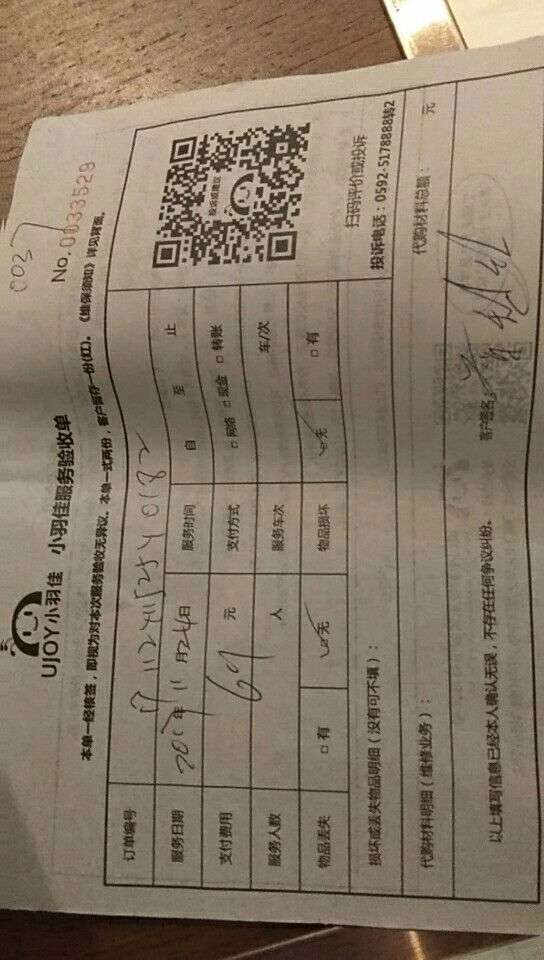 0037
UJOY小羽佳 小羽佳服务验收单
No.0033529
本单一经核签，即视为对本次服务验收无异议。本单一式两份，客户留存一份(红)。《维保须知》详见背面。
订单编号
服务日期 2017年11月24日 服务时间 自 至 止
支付费用 69元 支付方式 □网络 □现金 □转账
服务人数 人 服务车次 车/次
物品丢失 □有 ☑无 物品损坏 ☑无 □有
投诉或建议
扫码评价或投诉
投诉电话：0592-5178888转2
损坏或丢失物品明细（没有可不填）：
代购材料明细（维修业务）： 代购材料总额： 元
以上填写信息已经本人确认无误，不存在任何争议纠纷。 客户签名：